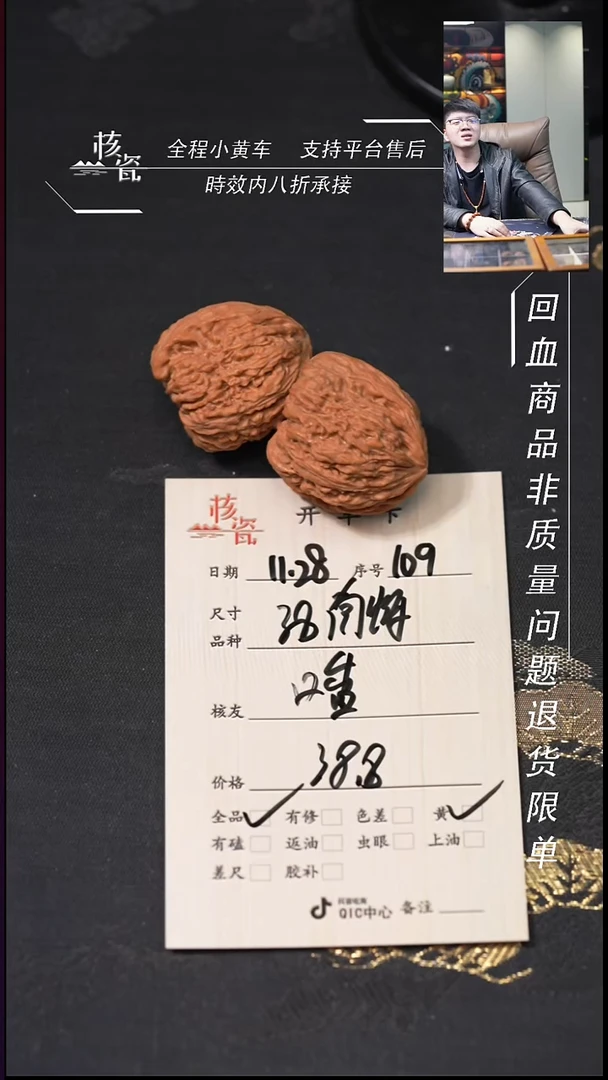 核瓷
全程小黄车 支持平台售后
時效内八折承接
回血商品非质量问题退货限单
核瓷
日期 11.28 序号 109
尺寸
品种 38
核友
价格 38.8
全品 有修 色差 黄
有磕 返油 虫眼 上油
差尺 胶补
QIC中心 备注